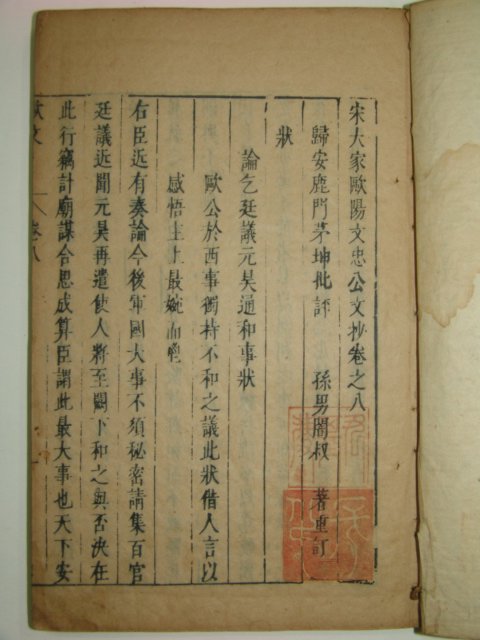 宋大家歐陽文忠公文抄卷之八
歸安鹿門茅坤批評 孫男闇叔 著重訂
狀
論乞廷議元昊通和事狀
歐公於西事獨持不和之議此狀借人言以
感悟主上最婉而
右臣近有奏論今後軍國大事不須秘密請集百官
廷議近聞元昊再遣使人將至闕下和之與否決在
此行竊計廟謀合思成算臣謂此最大事也天下安
歐文 卷八